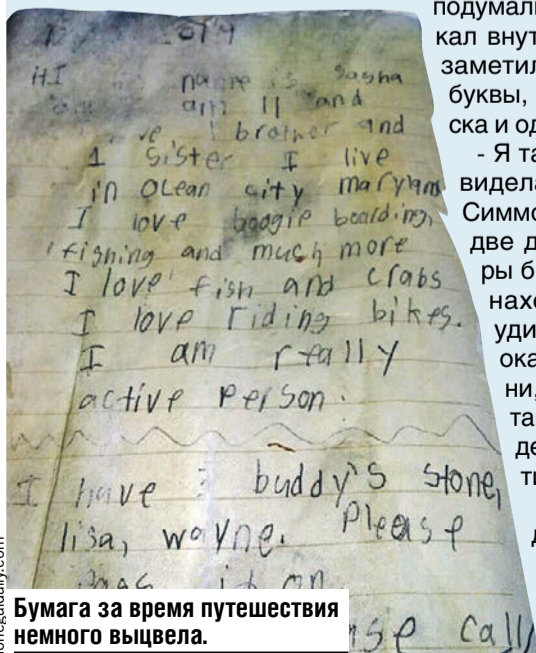 HI name is Sasha
am 11 and
brother and
1 sister I live
in Ocean city maryland
I love boogie boarding,
fishing and much more
I love fish and crabs
I love riding bikes.
I am really
active person.
I have buddy's stone,
lisa, wayne. Please
it on
call
Бумага за время путешествия
немного выцвела.
подумали
кал внут
заметил
буквы,
ска и од
- Я та
видела
Симмо
две д
ры б
нахо
уди
ока
ни,
та
де
ти